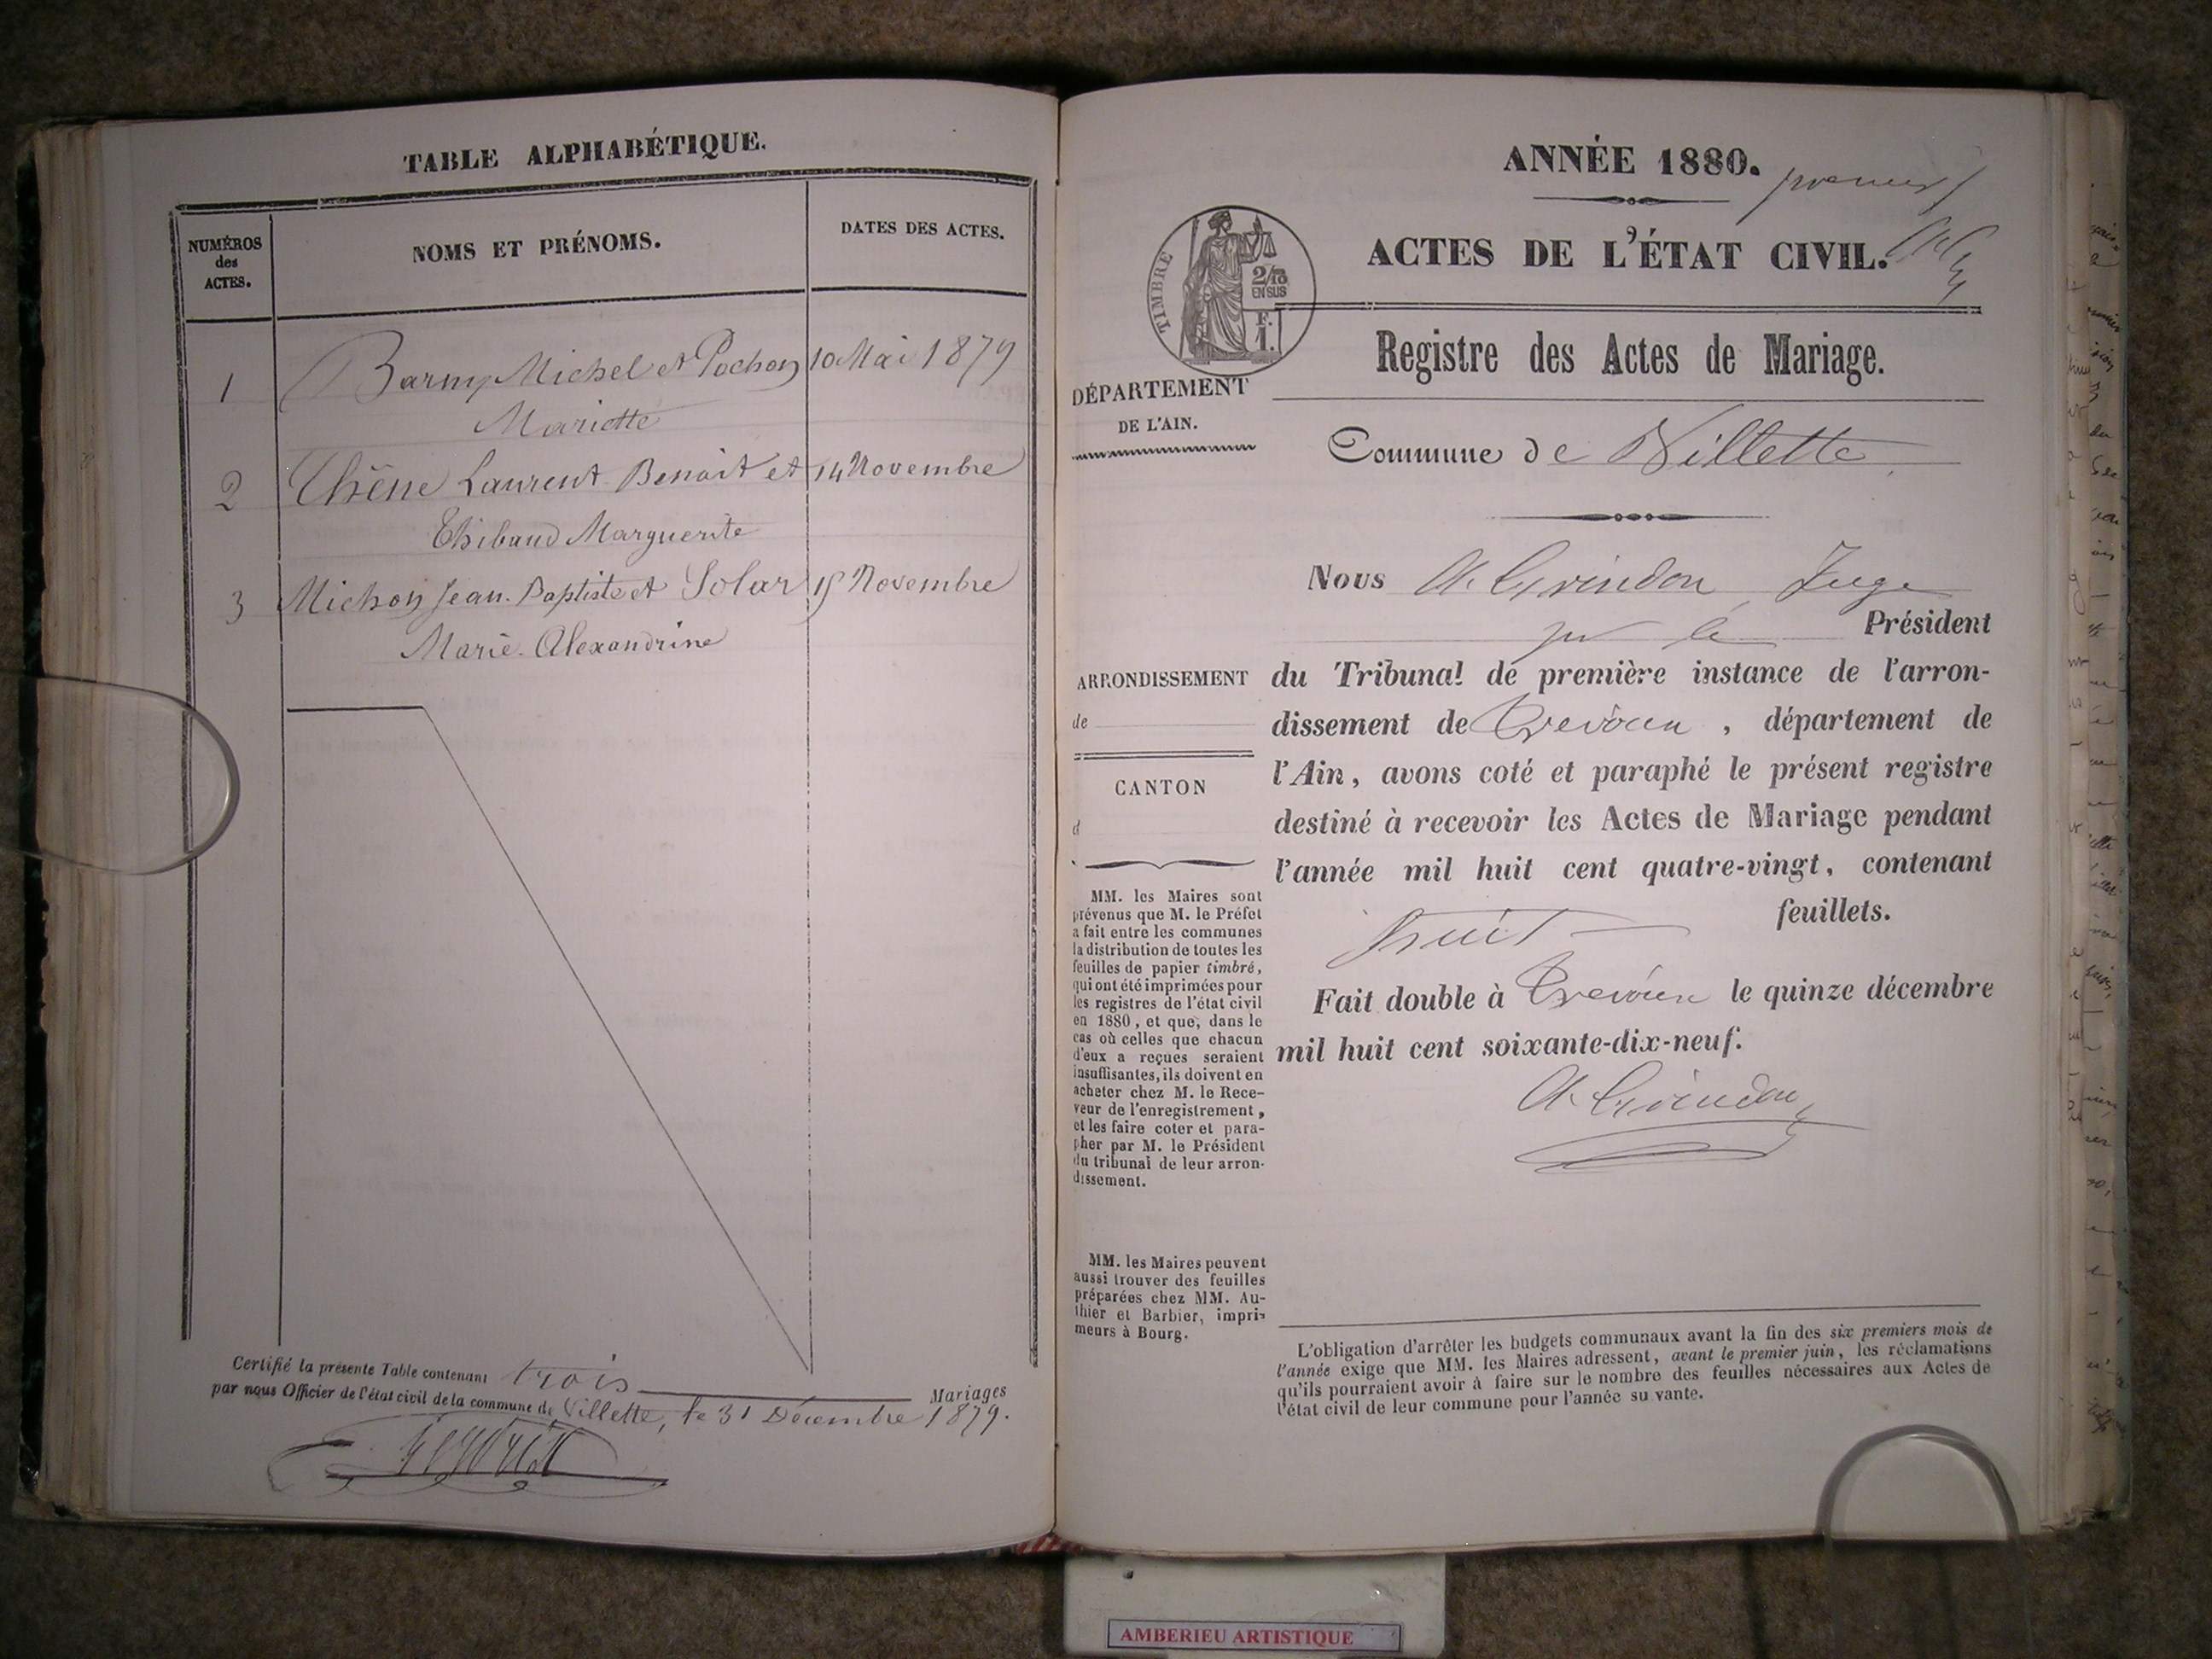 TABLE ALPHABÉTIQUE.
NUMÉROS
des
ACTES.
NOMS ET PRÉNOMS.
DATES DES ACTES.
1 Barny Michel et Pochon 10 Mai 1879
Mariette
2 Chêne Laurent Benoit et 14 Novembre
Thibaud Marguerite
3 Michon Jean-Baptiste et Solar 15 Novembre
Marie-Alexandrine
Certifié la présente Table contenant trois Mariages
par nous Officier de l'état civil de la commune de Villette, le 31 Décembre 1879.
ANNÉE 1880.
premier
ACTES DE L'ÉTAT CIVIL.
TIMBRE
2/10
EN SUS
F.
1.
Registre des Actes de Mariage.
DÉPARTEMENT
DE L'AIN.
Commune de Villette
Nous A. Grindon Juge
pr le Président
ARRONDISSEMENT
de
CANTON
d
du Tribunal de première instance de l'arron-
dissement de Trévoux, département de
l'Ain, avons coté et paraphé le présent registre
destiné à recevoir les Actes de Mariage pendant
l'année mil huit cent quatre-vingt, contenant
huit feuillets.
Fait double à Trévoux le quinze décembre
mil huit cent soixante-dix-neuf.
A. Grindon
MM. les Maires sont
prévenus que M. le Préfet
a fait entre les communes
la distribution de toutes les
feuilles de papier timbré,
qui ont été imprimées pour
les registres de l'état civil
en 1880, et que, dans le
cas où celles que chacun
d'eux a reçues seraient
insuffisantes, ils doivent en
acheter chez M. le Rece-
veur de l'enregistrement,
et les faire coter et para-
pher par M. le Président
du tribunal de leur arron-
dissement.
MM. les Maires peuvent
aussi trouver des feuilles
préparées chez MM. Au-
thier et Barbier, impri-
meurs à Bourg.
L'obligation d'arrêter les budgets communaux avant la fin des six premiers mois de
l'année exige que MM. les Maires adressent, avant le premier juin, les réclamations
qu'ils pourraient avoir à faire sur le nombre des feuilles nécessaires aux Actes de
l'état civil de leur commune pour l'année su vante.
AMBERIEU ARTISTIQUE